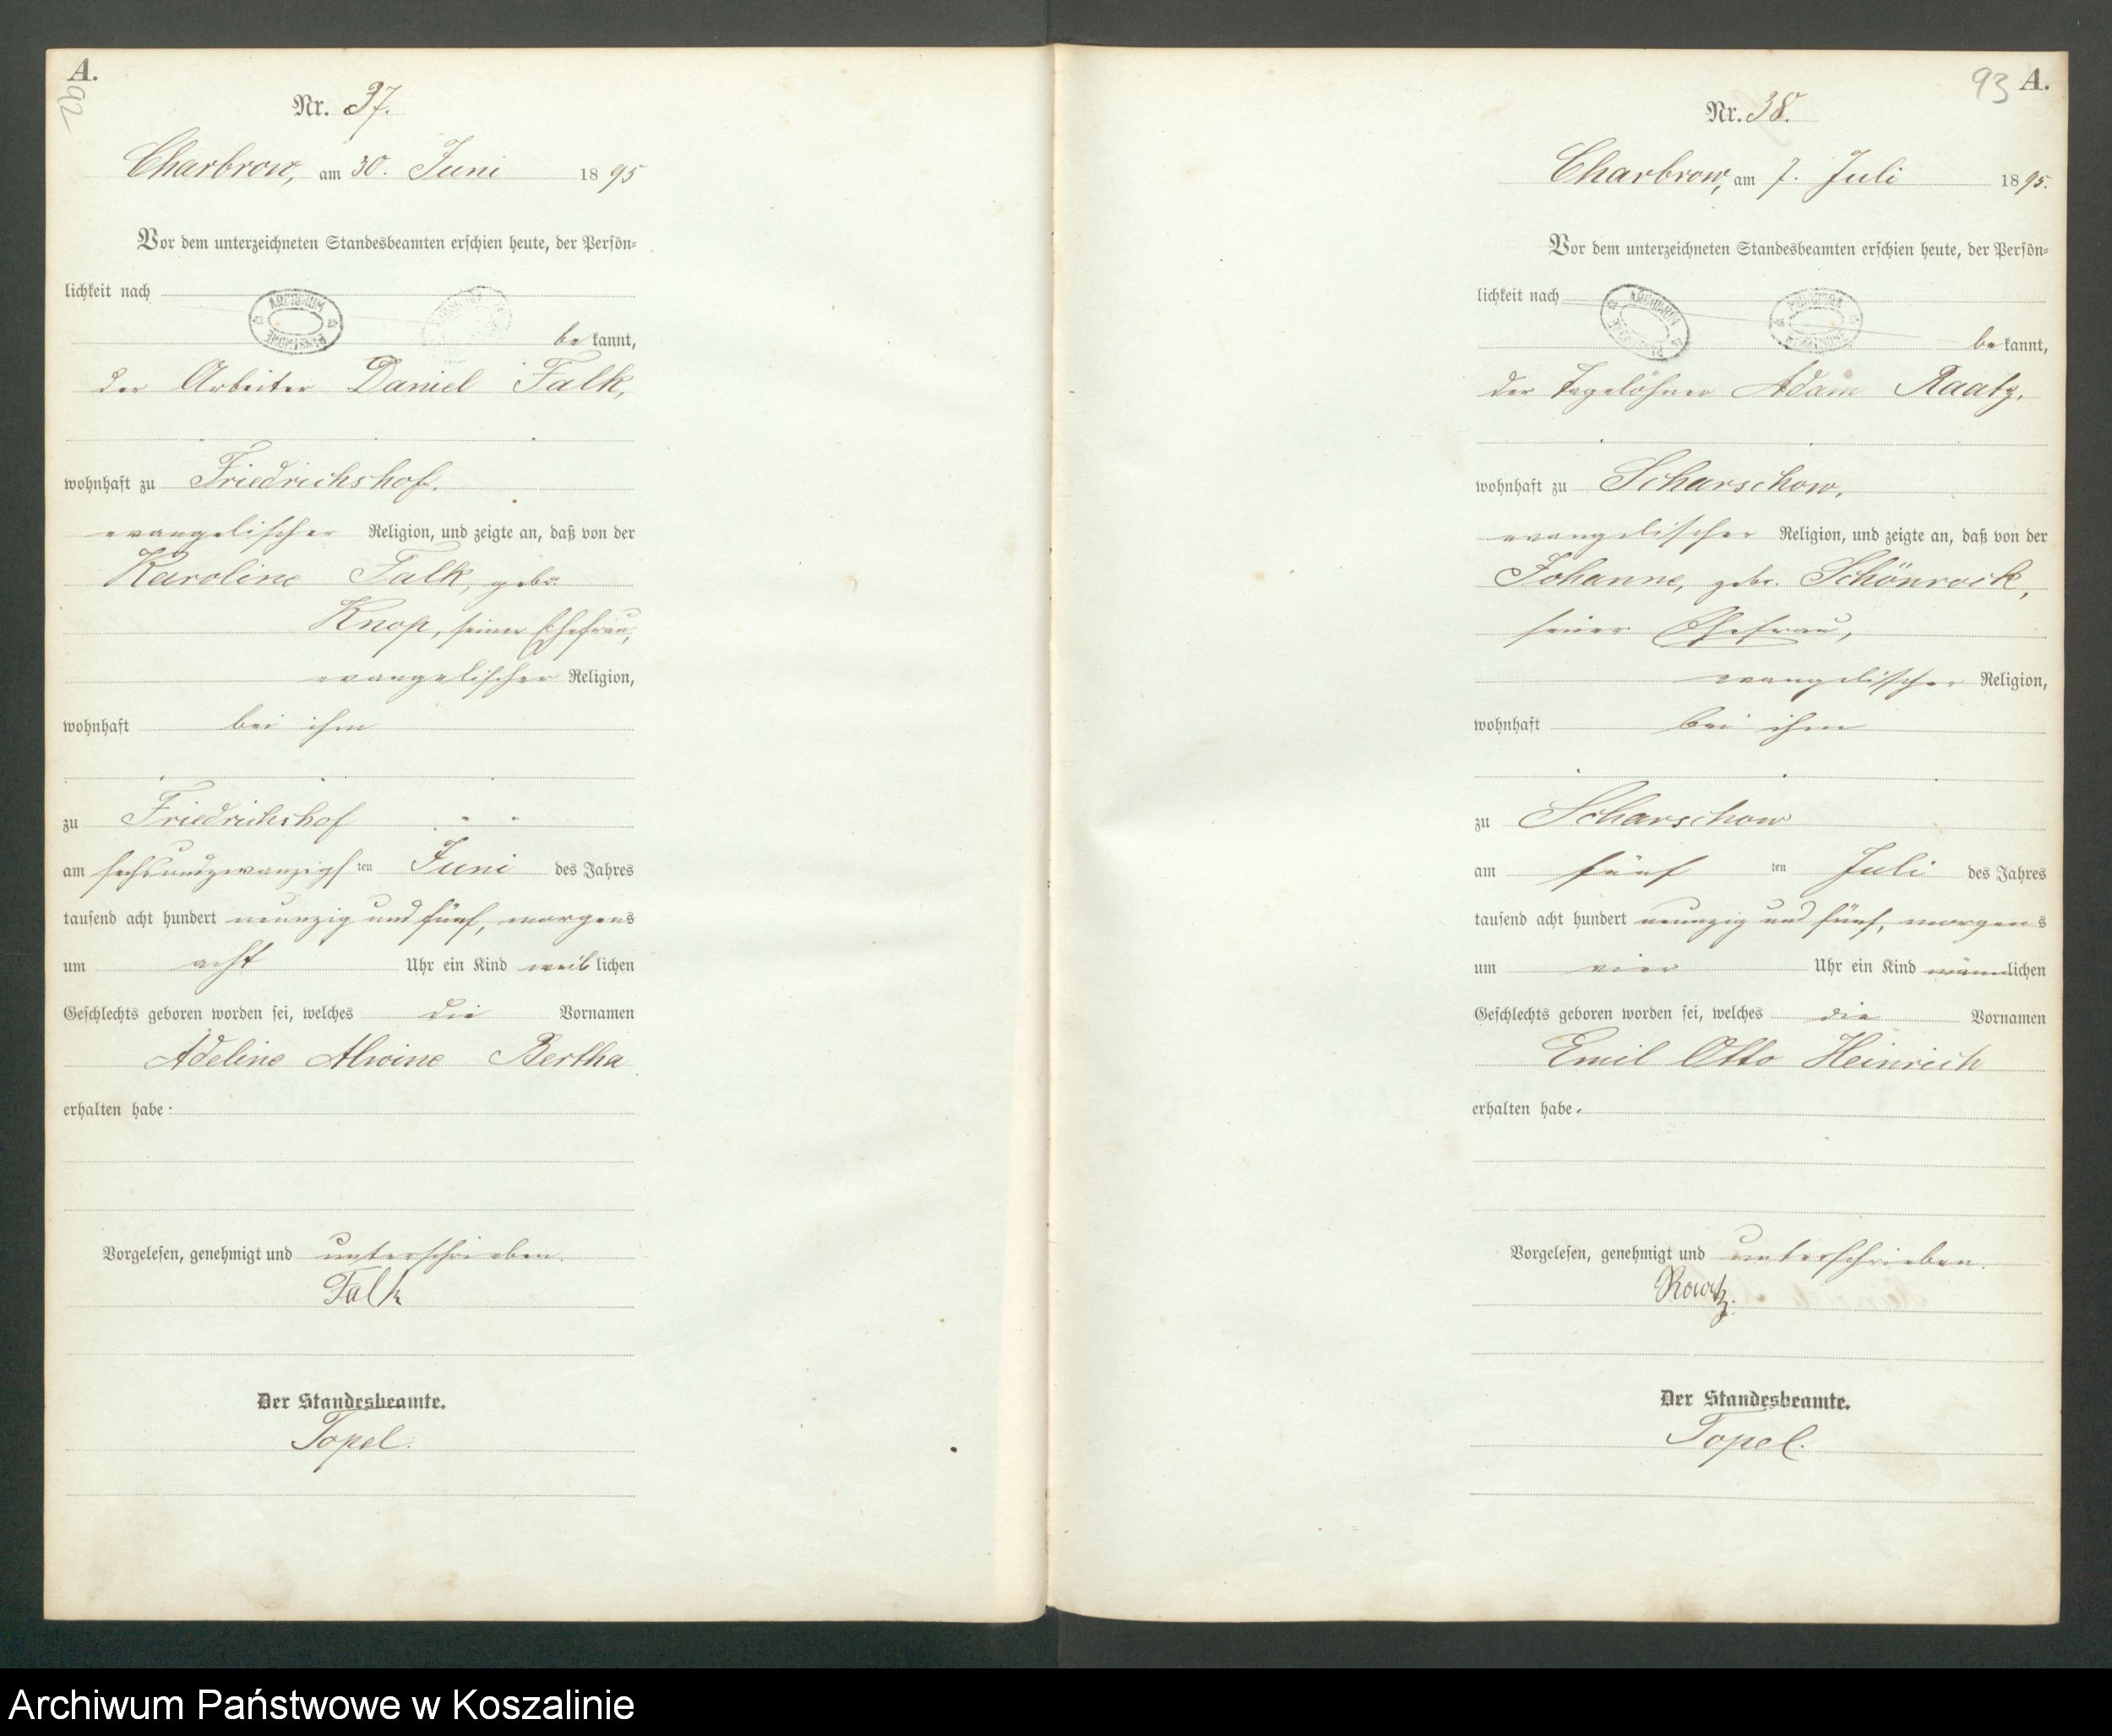 A.
92
Nr. 37.
Charbrow, am 30. Juni 1895
Vor dem unterzeichneten Standesbeamten erschien heute, der Persön-
lichkeit nach
be kannt,
der Arbeiter Daniel Falk,
wohnhaft zu Friedrichshof.
evangelischer Religion, und zeigte an, daß von der
Karoline Falk, geb.
Knop, seiner Ehefrau,
evangelischer Religion,
wohnhaft bei ihm
zu Friedrichshof
am sechsundzwanzigsten Juni des Jahres
tausend acht hundert neunzig und fünf, morgens
um acht Uhr ein Kind weiblichen
Geschlechts geboren worden sei, welches die Vornamen
Adeline Alwine Bertha
erhalten habe.
Vorgelesen, genehmigt und unterschrieben.
Falk
Der Standesbeamte.
Topel.
93 A.
Nr. 38.
Charbrow, am 7. Juli 1895.
Vor dem unterzeichneten Standesbeamten erschien heute, der Persön-
lichkeit nach
be kannt,
der Tagelöhner Adam Raatz,
wohnhaft zu Scharschow,
evangelischer Religion, und zeigte an, daß von der
Johanne, geb. Schönrock,
seiner Ehefrau,
evangelischer Religion,
wohnhaft bei ihm
zu Scharschow
am fünften Juli des Jahres
tausend acht hundert neunzig und fünf, morgens
um vier Uhr ein Kind männlichen
Geschlechts geboren worden sei, welches die Vornamen
Emil Otto Heinrich
erhalten habe.
Vorgelesen, genehmigt und unterschrieben.
Raatz.
Der Standesbeamte.
Topel.
Archiwum Państwowe w Koszalinie